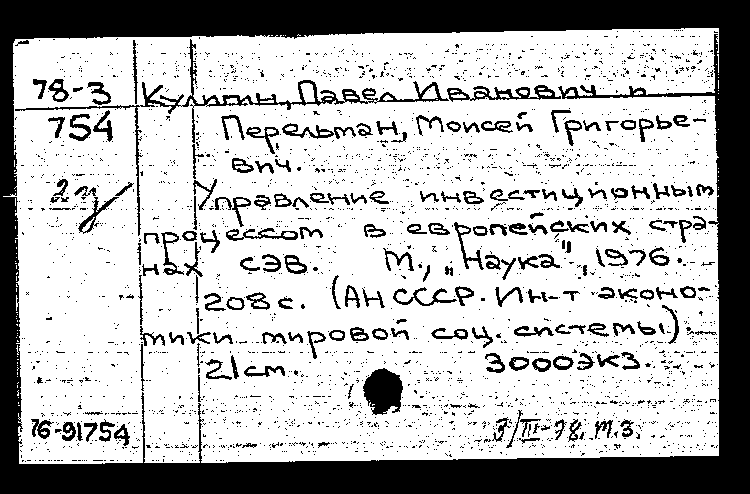 78-3 Кулигин, Павел Иванович и
754 Перельман, Моисей Григорье-
вич.
2 Управление инвестиционным
процессом в европейских стра-
нах СЭВ. М., „Наука", 1976.
208 с. (АН СССР. Ин-т эконо-
мики мировой соц. системы)
21 см. 3000 экз.
76-91754 3/III-78. т.з.